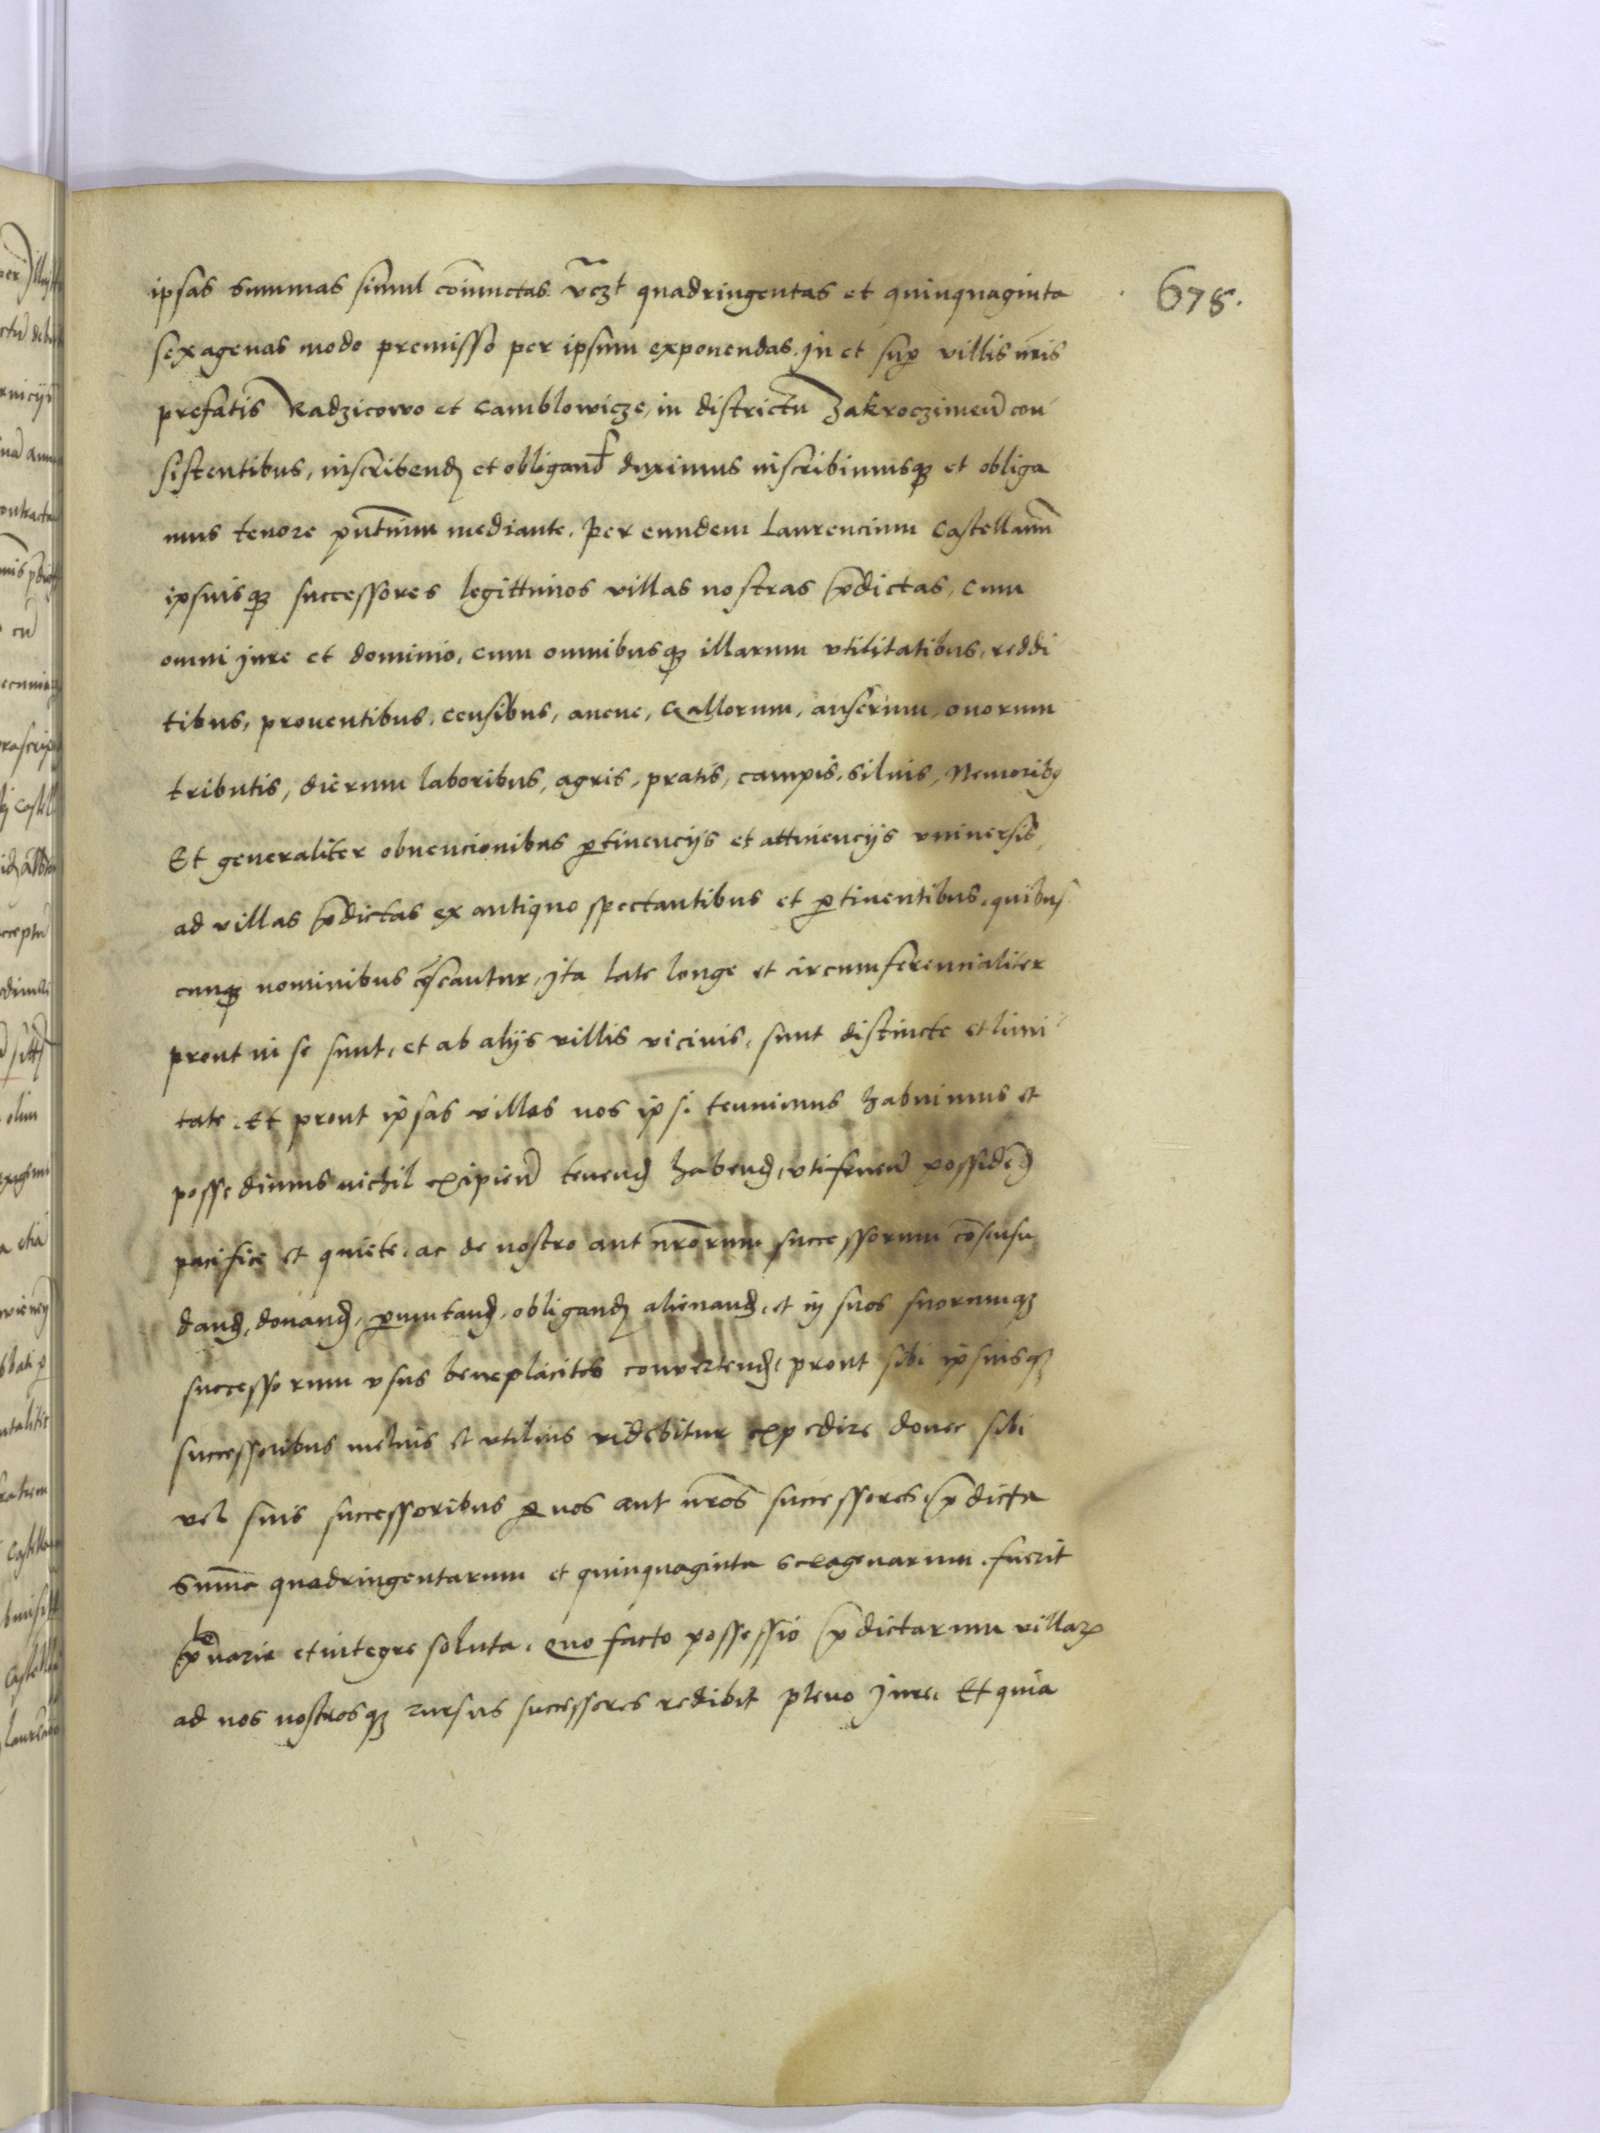 ipsas summas simul coniunctas vczt quadringentas et quinquaginta
678.
sexagenas modo premisso per ipsum exponendas. In et sup villis nris
prefatis Radzicowo et Camblowicze, in districtu Zakroczimen con
sistentibus, inscribend et obligand duximus inscribimusq et obliga
mus tenore pntium mediante. Per eundem Laurencium Castellanum
ipsiusq successores legittimos villas nostras pdictas, cum
omni iure et dominio, cum omnibusq illarum vtilitatibus, reddi
tibus, prouentibus, censibus, auene, Gallorum, anserum, ouorum
tributis, dierum laboribus, agris, pratis, campis, siluis, Nemoribq
Et generaliter obuencionibus ptinencijs et attinencijs vniuersis,
ad villas pdictas ex antiquo spectantibus et ptinentibus, quibus
cunq nominibus censeantur, Ita late longe et circumferencialiter
prout in se sunt, et ab alijs villis vicinis, sunt distincte et limi
tate. Et prout ipsas villas nos ipsi tenuimus habuimus et
possedimus nichil excipien tenend habend, vtifruen possidend
pacifice et quiete, ac de nostro aut nrorum successorum consensu
dand, donand, pmutand, obligand alienand, et in suos suorumq
successorum vsus beneplacitos conuertend, prout sibi ipsiusq
successoribus melius et vtilius videbitur expedire donec sibi
vel suis successoribus p nos aut nros successores, pdicta
summa quadringentarum et quinquaginta sexagenarum. fuerit
plenarie et integre soluta. Quo facto possessio pdictarum villar
ad nos nostrosq rursus successores redibit pleno Iure. Et quia